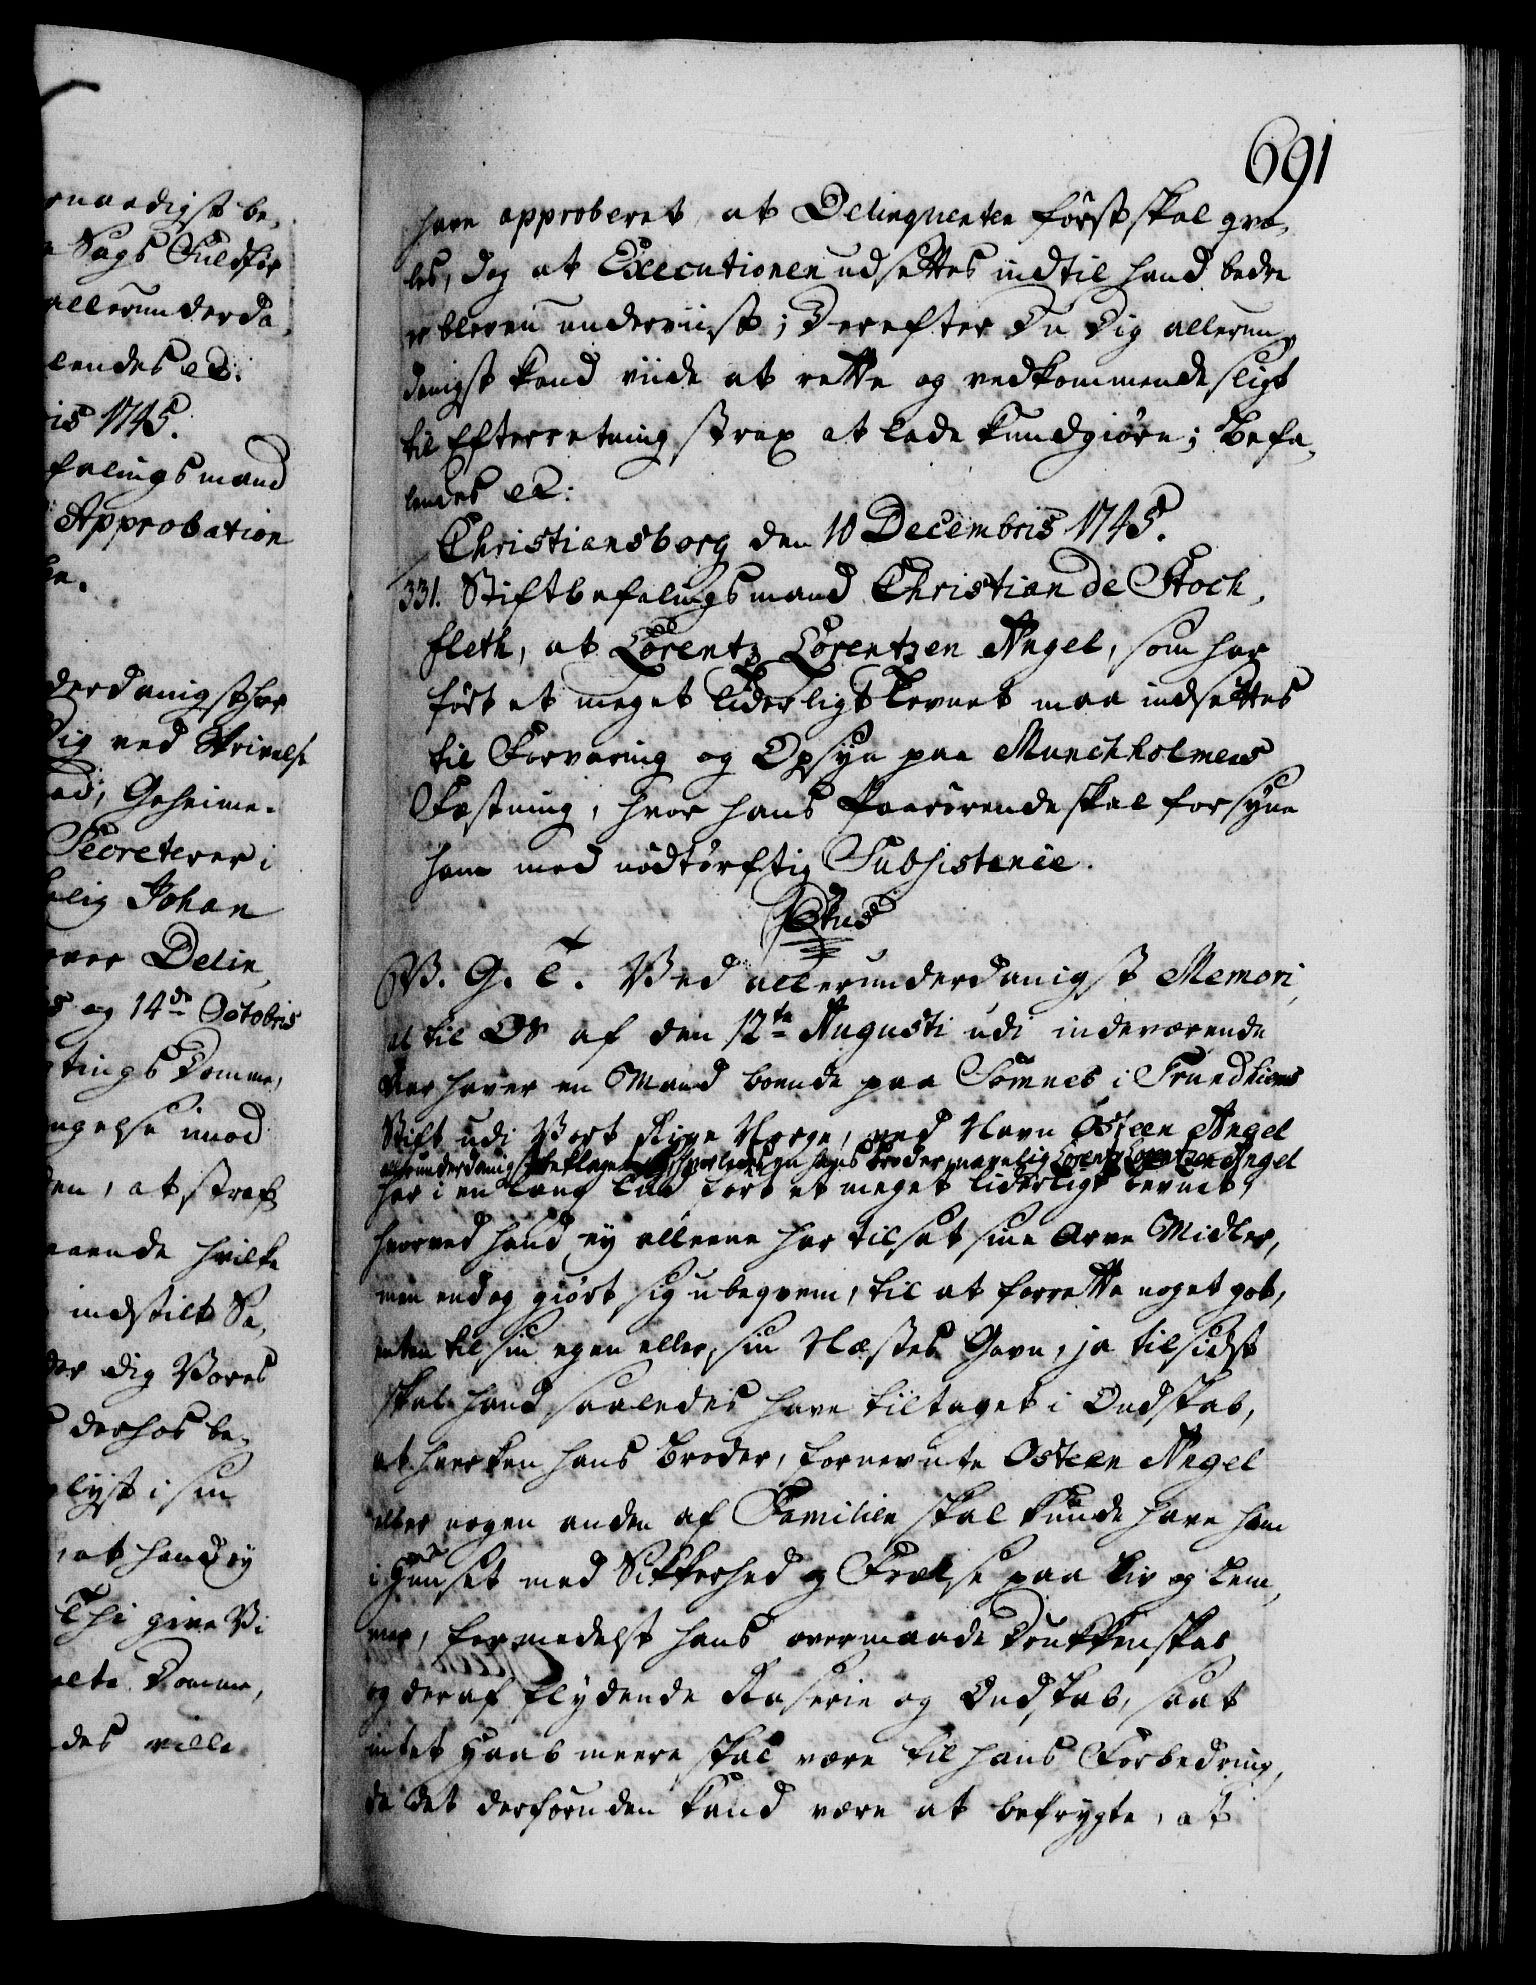 691
naadigst be-
Sags Fuldfør
allerunderda-
lendes etc:
is 1745.
falingsmand
Approbation
derdanigst har
Dig ved Skrivelse
Geheime-
Secreterer i
Johan
over Delin-
og 14de Octobris
tings Domme,
ngelse imod
den, at straf
hvilke
indstilt Sa-
dig Vores
derhos be-
lyst i sin
at hand ey
Thi give Vi
Domme,
des ville
have approberet, at Delinquenten først skal gra-
les, dog at Executionen udsettes indtil hand bedre
er bleven underviist; Derefter Du Dig allerun-
danigst kand viide at rette og vedkommende sligt
til Efterretning strax at lade kundgiøre; Befa-
lendes etc:
Christiansborg den 10 Decembris 1745.
331. Stiftbefalingsmand Christian de Stoch-
fleth, at Lorentz Lorentzen Angel, som har
ført et meget liderligt Levnet maa indsettes
til Forvaring og Opsyn paa Munchholmens
Fæstning, hvor hans Paarørende skal forsyne
ham med nødtørftig Subsistence.
V. G. T. Ved allerunderdanigst Memori-
al til Os af den 12te Augusti udi indeværende
Aar haver en Mand boende paa Sømnes i Trundhiems
Stift udi Vort Rige Norge, ved Navn Osteen Angel
allerunderdanigst beklaget hvorledes en hans Broder, navnlig Lorentz Lorentzen Angel
har i en lang Tiid ført et meget liderligt Levnet,
hvorved hand ey alleene har tilsat sine Arve Midler,
men endog giort sig ubeqvem, til at forrette noget got,
enten til sin egen eller sin Næstes Gavn, ja tilsidst
skal hand saaledes have tiltaget i Ondskab,
at hverken hans Broder, fornevnte Osteen Angel
eller nogen anden af Familien skal kunde have ham
i Huuset med Sikkerhed og Frelse paa Liv og Lem-
mer, formedelst hans overmaade Drukkenskab
og deraf flydende Raserie og Ondskab, saa at
intet Haab meere skal være til hans Forbedring,
da det derforuden kand være at befrygte, at